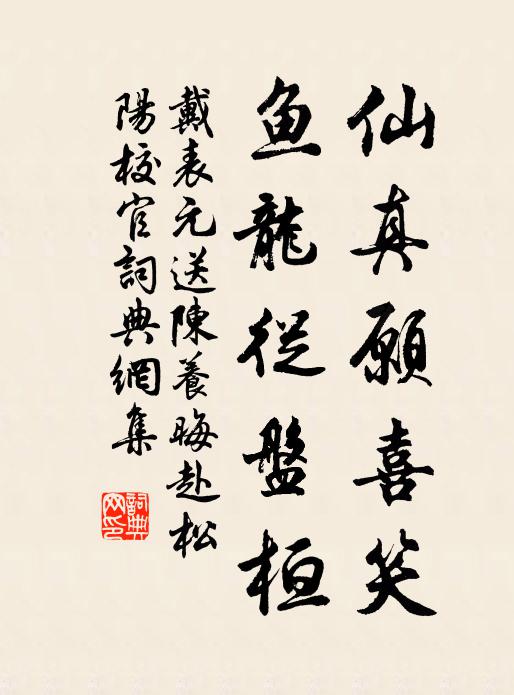 仙真願喜笑
鱼龍從盤桓
戴表元送陳養晦赴松
陽校官詞典網集
詞典网印